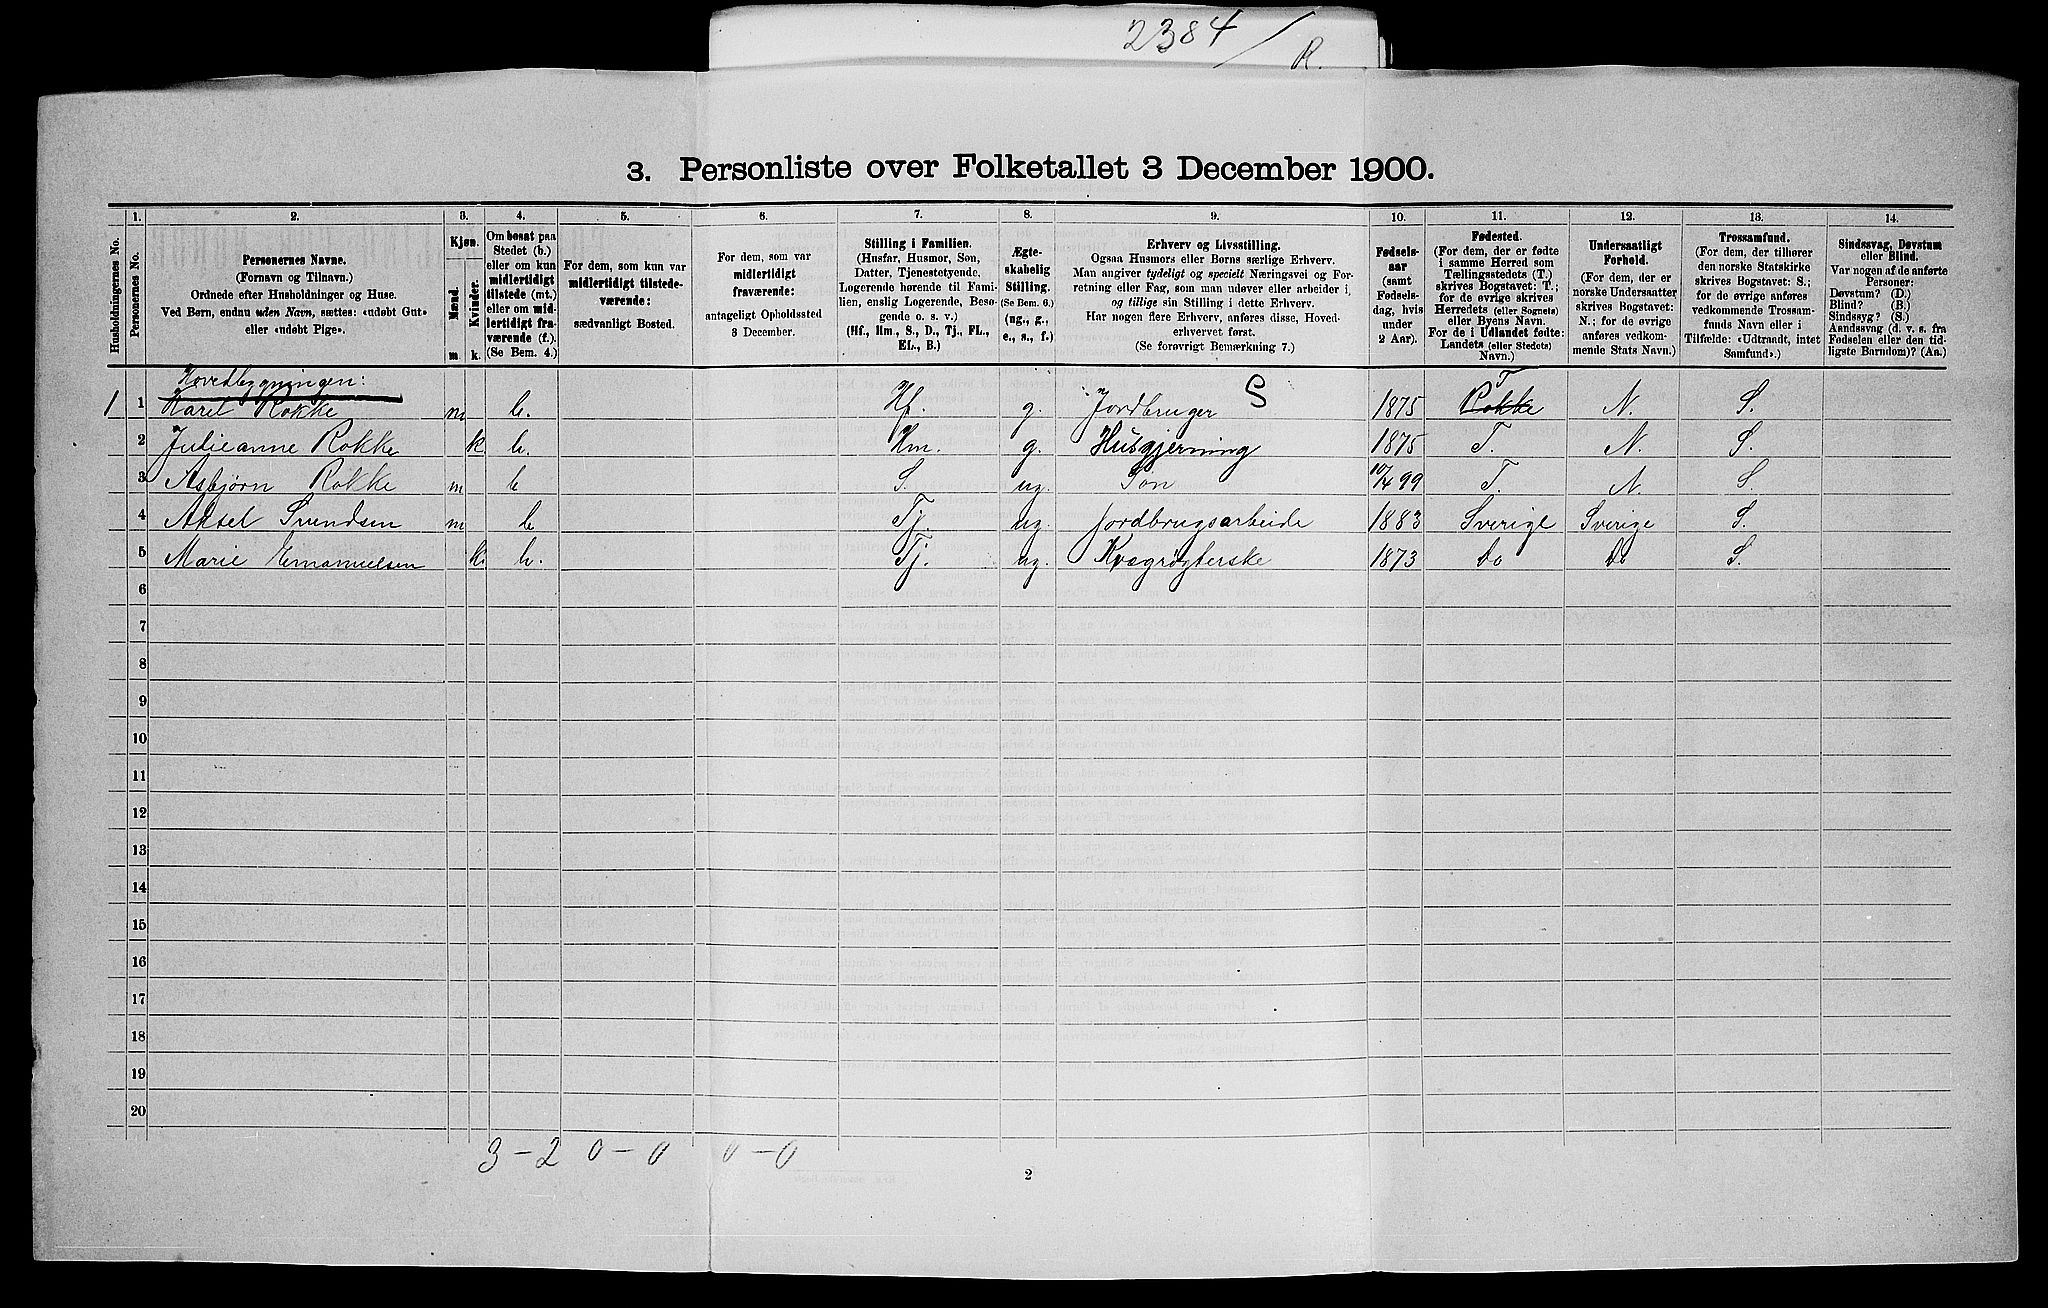 2384 / R.
3. Personliste over Folketallet 3 December 1900.
1. 2. 3. 4. 5. 6. 7. 8. 9. 10. 11. 12. 13. 14.
Husholdningernes No.
Personernes No.
Personernes Navne.
(Fornavn og Tilnavn.)
Ordnede efter Husholdninger og Huse.
Ved Børn, endnu uden Navn, sættes: «udøbt Gut»
eller «udøbt Pige».
Kjøn.
Mænd.
Kvinder.
m. k.
Om bosat paa
Stedet (b.)
eller om kun
midlertidigt
tilstede (mt.)
eller om mid-
lertidigt fra-
værende (f.).
(Se Bem. 4.)
For dem, som kun var
midlertidigt tilstede-
værende:
sædvanligt Bosted.
For dem, som var
midlertidigt
fraværende:
antageligt Opholdssted
3 December.
Stilling i Familien.
(Husfar, Husmor, Søn,
Datter, Tjenestetyende,
Logerende hørende til Fami-
lien, enslig Logerende, Besø-
gende o. s. v.)
(Hf., Hm., S., D., Tj., FL.,
EL., B.)
Ægte-
skabelig
Stilling.
(Se Bem. 6.)
(ug., g.,
e., s., f.)
Erhverv og Livsstilling.
Ogsaa Husmors eller Børns særlige Erhverv.
Man angiver tydeligt og specielt Næringsvei og For-
retning eller Fag, som man udøver eller arbeider i,
og tillige sin Stilling i dette Erhverv.
Har nogen flere Erhverv, anføres disse, Hoved-
erhvervet først.
(Se forøvrigt Bemærkning 7.)
Fødsels-
aar
(samt
Fødsels-
dag, hvis
under
2 Aar).
Fødested.
(For dem, der er fødte
i samme Herred som
Tællingsstedets (T.)
skrives Bogstavet: T.;
for de øvrige skrives
Herredets (eller Sognets)
eller Byens Navn.
For de i Udlandet fødte:
Landets (eller Stedets)
Navn.)
Undersaatligt
Forhold.
(For dem, der er
norske Undersaatter
skrives Bogstavet:
N.; for de øvrige
anføres vedkom-
mende Stats Navn.)
Trossamfund.
(For dem, der tilhører
den norske Statskirke
skrives Bogstavet: S.;
for de øvrige anføres
vedkommende Trossam-
funds Navn eller i
Tilfælde: «Udtraadt, intet
Samfund».)
Sindssvag, Døvstum
eller Blind.
Var nogen af de anførte
Personer:
Døvstum? (D.)
Blind? (B.)
Sindssyg? (S.)
Aandssvag (d. v. s. fra
Fødselen eller den tid-
ligste Barndom)? (Aa.)
Hovedbygningen:
1 1 Karel Rokke m b. Hf. g. Jordbruger S 1875 Rokke T N. S.
2 Julieanne Rokke k b. Hm. g. Husgjerning 1875 T. N. S.
3 Asbjørn Rokke m b S. ug. Søn 10/4 99 T. N. S.
4 Aksel Svendsen m b Tj. ug. Jordbrugsarbeide 1883 Sverige Sverige S.
5 Marie Emanuelsen k. b. Tj. ug. Kvægrøgterske 1873 Do Do S.
6
7
8
9
10
11
12
13
14
15
16
17
18
19
20
3-2 0-0 0-0
2